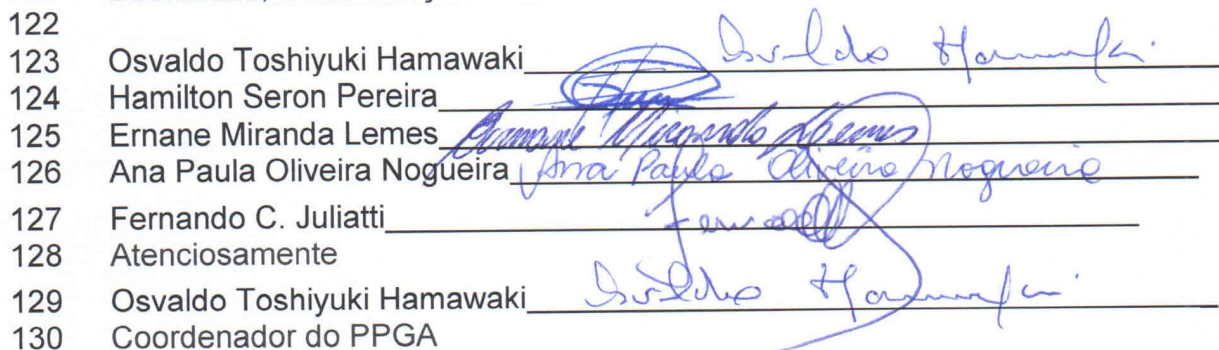 122
123 Osvaldo Toshiyuki Hamawaki Osvaldo Hamawaki
124 Hamilton Seron Pereira
125 Ernane Miranda Lemes Ernane Miranda Lemes
126 Ana Paula Oliveira Nogueira Ana Paula Oliveira Nogueira
127 Fernando C. Juliatti
128 Atenciosamente
129 Osvaldo Toshiyuki Hamawaki Osvaldo Hamawaki
130 Coordenador do PPGA